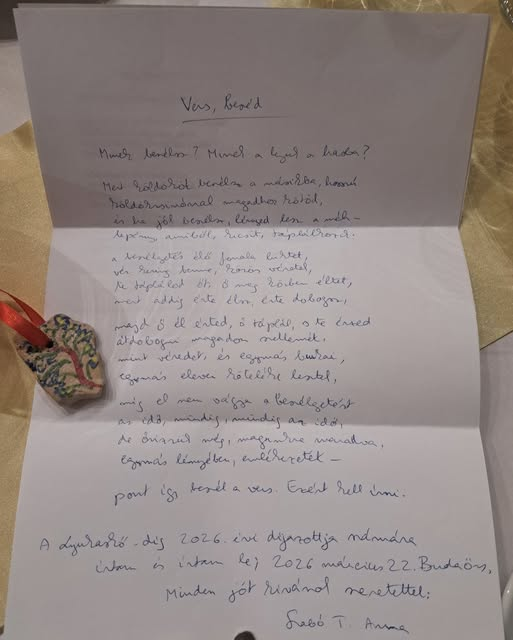 Vers, beszéd
Minek beszélsz? Minek a lyuk a hasba?
Mert köldököt beszélsz a másikba, hosszú
köldökzsinórral magadhoz kötöd,
és ha jól beszélsz, lényed lesz a méh-
lepény, amiből, kicsit, táplálkozik.
a beszélgetés élő fonala lüktet,
vér kering benne, közös véretek,
te táplálod őt, ő meg közben éltet,
mert addig érte élsz, érte dobogsz,
majd ő él érted, ő táplál, s te érzed
átdobogni magadon szellemét,
mint véredet, és egymás burkai,
egymás eleven kötelékei lesztek,
míg el nem vágja a beszélgetést
az idő, mindig, mindig az idő,
de őrizzük még, magunkra maradva,
egymás lényében, emlékezetek –
pont így beszél a vers. Ezért kell írni.
A Lyukaskő-díj 2026. évi díjazottja számára
írtam és írtam le, 2026 március 22. Budaörs,
Minden jót kívánok szeretettel:
Szabó T. Anna